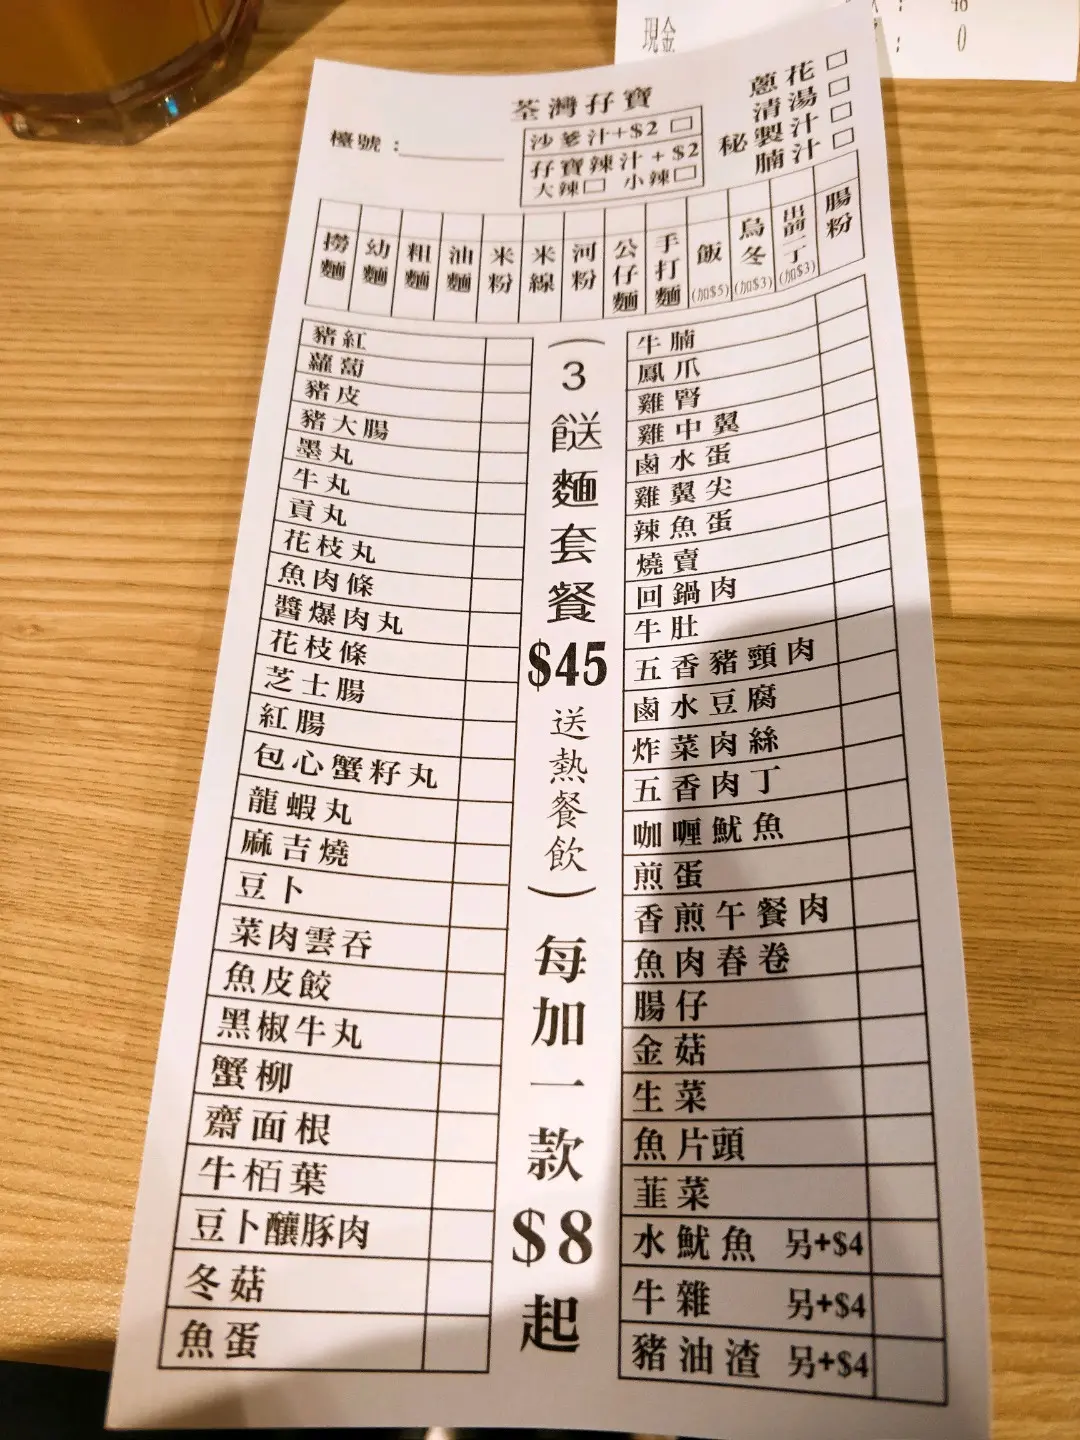 現金
: 48
: 0
荃灣孖寶
檯號：
沙爹汁+$2
孖寶辣汁+$2
大辣 小辣
蔥花
清湯
秘製汁
腩汁
撈麵
幼麵
粗麵
油麵
米粉
米線
河粉
公仔麵
手打麵
飯(加$5)
烏冬(加$3)
出前一丁(加$3)
腸粉
豬紅
蘿蔔
豬皮
豬大腸
墨丸
牛丸
貢丸
花枝丸
魚肉條
醬爆肉丸
花枝條
芝士腸
紅腸
包心蟹籽丸
龍蝦丸
麻吉燒
豆卜
菜肉雲吞
魚皮餃
黑椒牛丸
蟹柳
齋面根
牛栢葉
豆卜釀豚肉
冬菇
魚蛋
(3餸麵套餐$45送熱餐飲)每加一款$8起
牛腩
鳳爪
雞腎
雞中翼
鹵水蛋
雞翼尖
辣魚蛋
燒賣
回鍋肉
牛肚
五香豬頸肉
鹵水豆腐
炸菜肉絲
五香肉丁
咖喱魷魚
煎蛋
香煎午餐肉
魚肉春卷
腸仔
金菇
生菜
魚片頭
韮菜
水魷魚 另+$4
牛雜 另+$4
豬油渣 另+$4